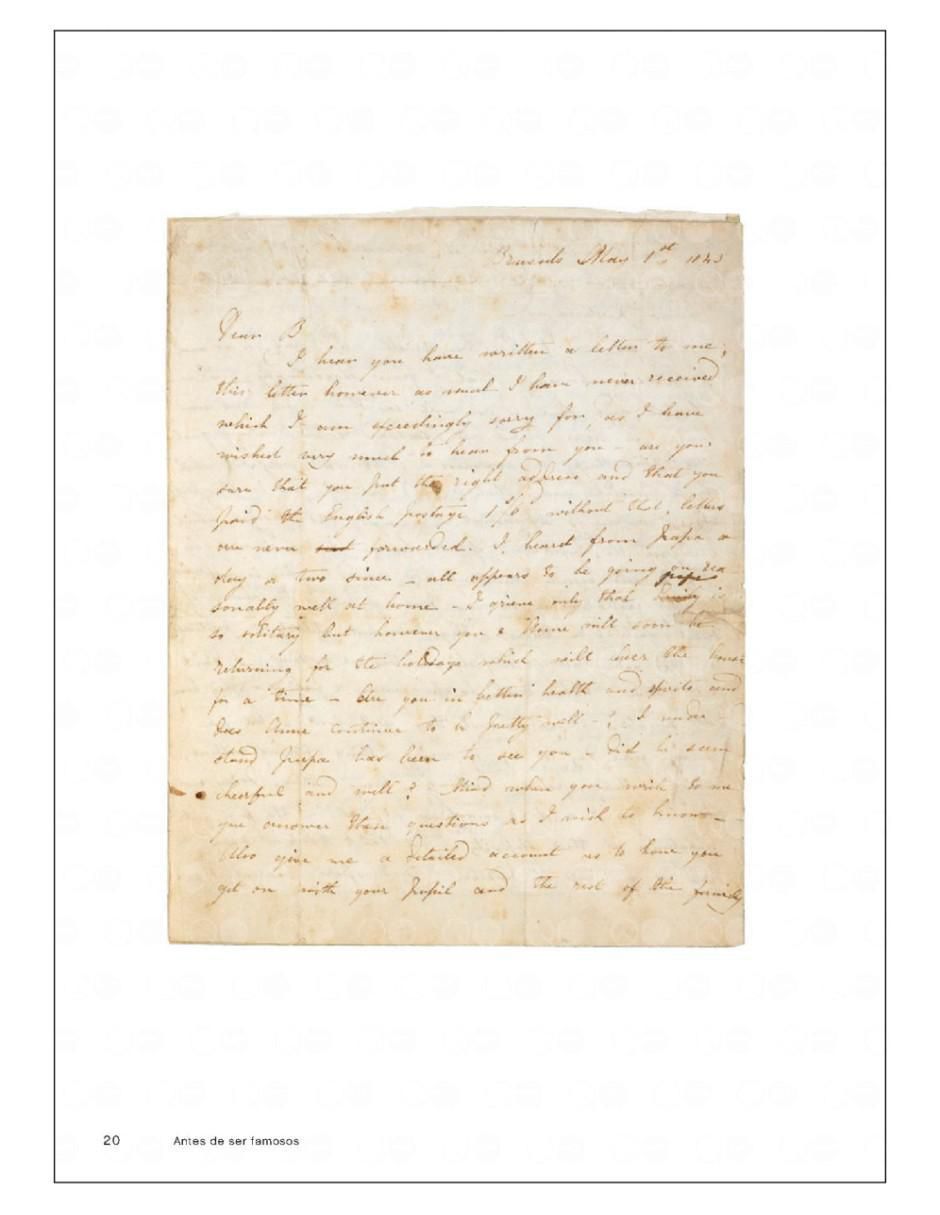 Brussels May 1st 1843
Dear B
I hear you have written a letter to me;
this letter however as usual I have never received
which I am exceedingly sorry for, as I have
wished very much to hear from you – are you
sure that you put the right address and that you
paid the English postage 1/6 without that, letters
are never forwarded. I heard from Papa a
day or two since – all appears to be going on rea
sonably well at home – I grieve only that is
so solitary but however you & Anne will soon be
returning for the holidays which will cheer the house
for a time – Are you in better health and spirits and
does Anne continue to be pretty well –? I under
stand Papa has been to see you – did he seem
cheerful and well? Mind when you write to me
you answer these questions as I wish to know –
Also give me a detailed account as to how you
get on with your pupil and the rest of the family
20 Antes de ser famosos